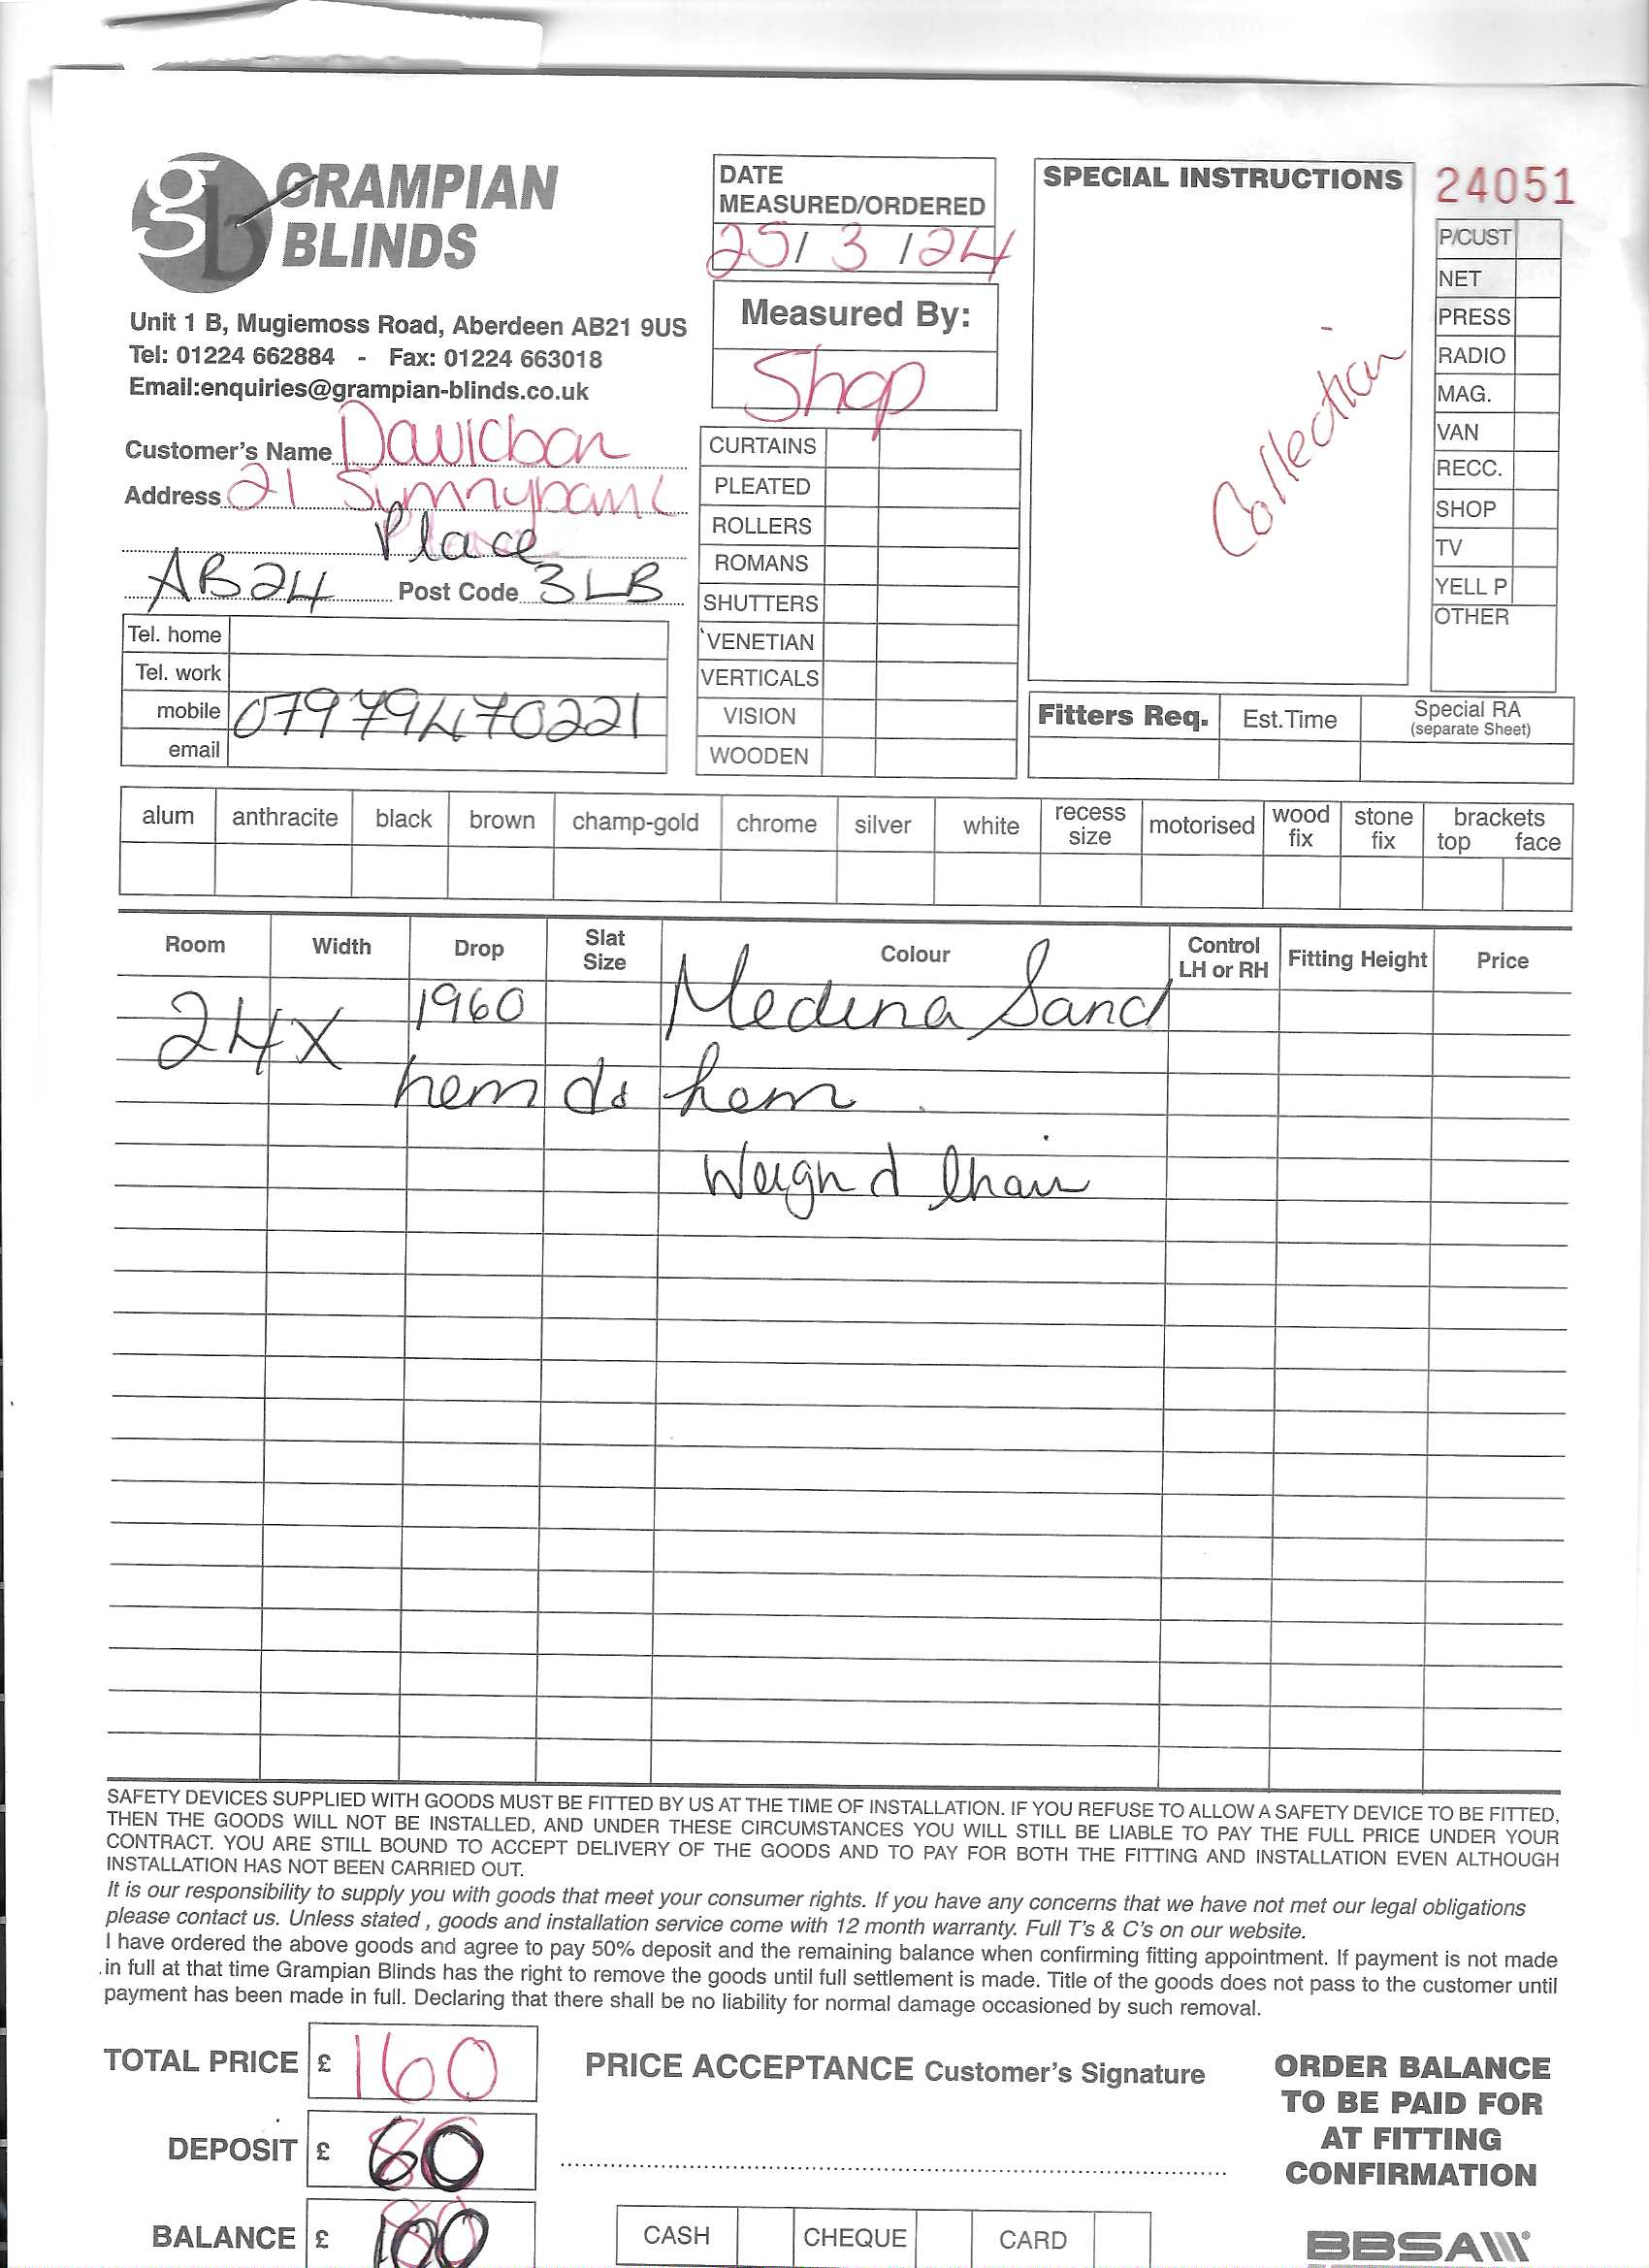 gb GRAMPIAN BLINDS
Unit 1 B, Mugiemoss Road, Aberdeen AB21 9US
Tel: 01224 662884 - Fax: 01224 663018
Email:enquiries@grampian-blinds.co.uk
Customer's Name Davidson
Address 21 Sunnybank
Place
AB24 Post Code 3LB
Tel. home
Tel. work
mobile 07979470221
email
DATE
MEASURED/ORDERED
25/ 3 /24
Measured By:
Shop
CURTAINS
PLEATED
ROLLERS
ROMANS
SHUTTERS
VENETIAN
VERTICALS
VISION
WOODEN
SPECIAL INSTRUCTIONS
Collection
24051
P/CUST
NET
PRESS
RADIO
MAG.
VAN
RECC.
SHOP
TV
YELL P
OTHER
Fitters Req. Est.Time Special RA
(separate Sheet)
alum anthracite black brown champ-gold chrome silver white recess size motorised wood fix stone fix brackets top face
Room Width Drop Slat Size Colour Control LH or RH Fitting Height Price
24x 1960 Medina Sand
hem to hem
Weigh d Chain
SAFETY DEVICES SUPPLIED WITH GOODS MUST BE FITTED BY US AT THE TIME OF INSTALLATION. IF YOU REFUSE TO ALLOW A SAFETY DEVICE TO BE FITTED,
THEN THE GOODS WILL NOT BE INSTALLED, AND UNDER THESE CIRCUMSTANCES YOU WILL STILL BE LIABLE TO PAY THE FULL PRICE UNDER YOUR
CONTRACT. YOU ARE STILL BOUND TO ACCEPT DELIVERY OF THE GOODS AND TO PAY FOR BOTH THE FITTING AND INSTALLATION EVEN ALTHOUGH
INSTALLATION HAS NOT BEEN CARRIED OUT.
It is our responsibility to supply you with goods that meet your consumer rights. If you have any concerns that we have not met our legal obligations
please contact us. Unless stated , goods and installation service come with 12 month warranty. Full T's & C's on our website.
I have ordered the above goods and agree to pay 50% deposit and the remaining balance when confirming fitting appointment. If payment is not made
in full at that time Grampian Blinds has the right to remove the goods until full settlement is made. Title of the goods does not pass to the customer until
payment has been made in full. Declaring that there shall be no liability for normal damage occasioned by such removal.
TOTAL PRICE £ 160
DEPOSIT £ 60
BALANCE £ 100
PRICE ACCEPTANCE Customer's Signature
CASH CHEQUE CARD
ORDER BALANCE
TO BE PAID FOR
AT FITTING
CONFIRMATION
BBSA